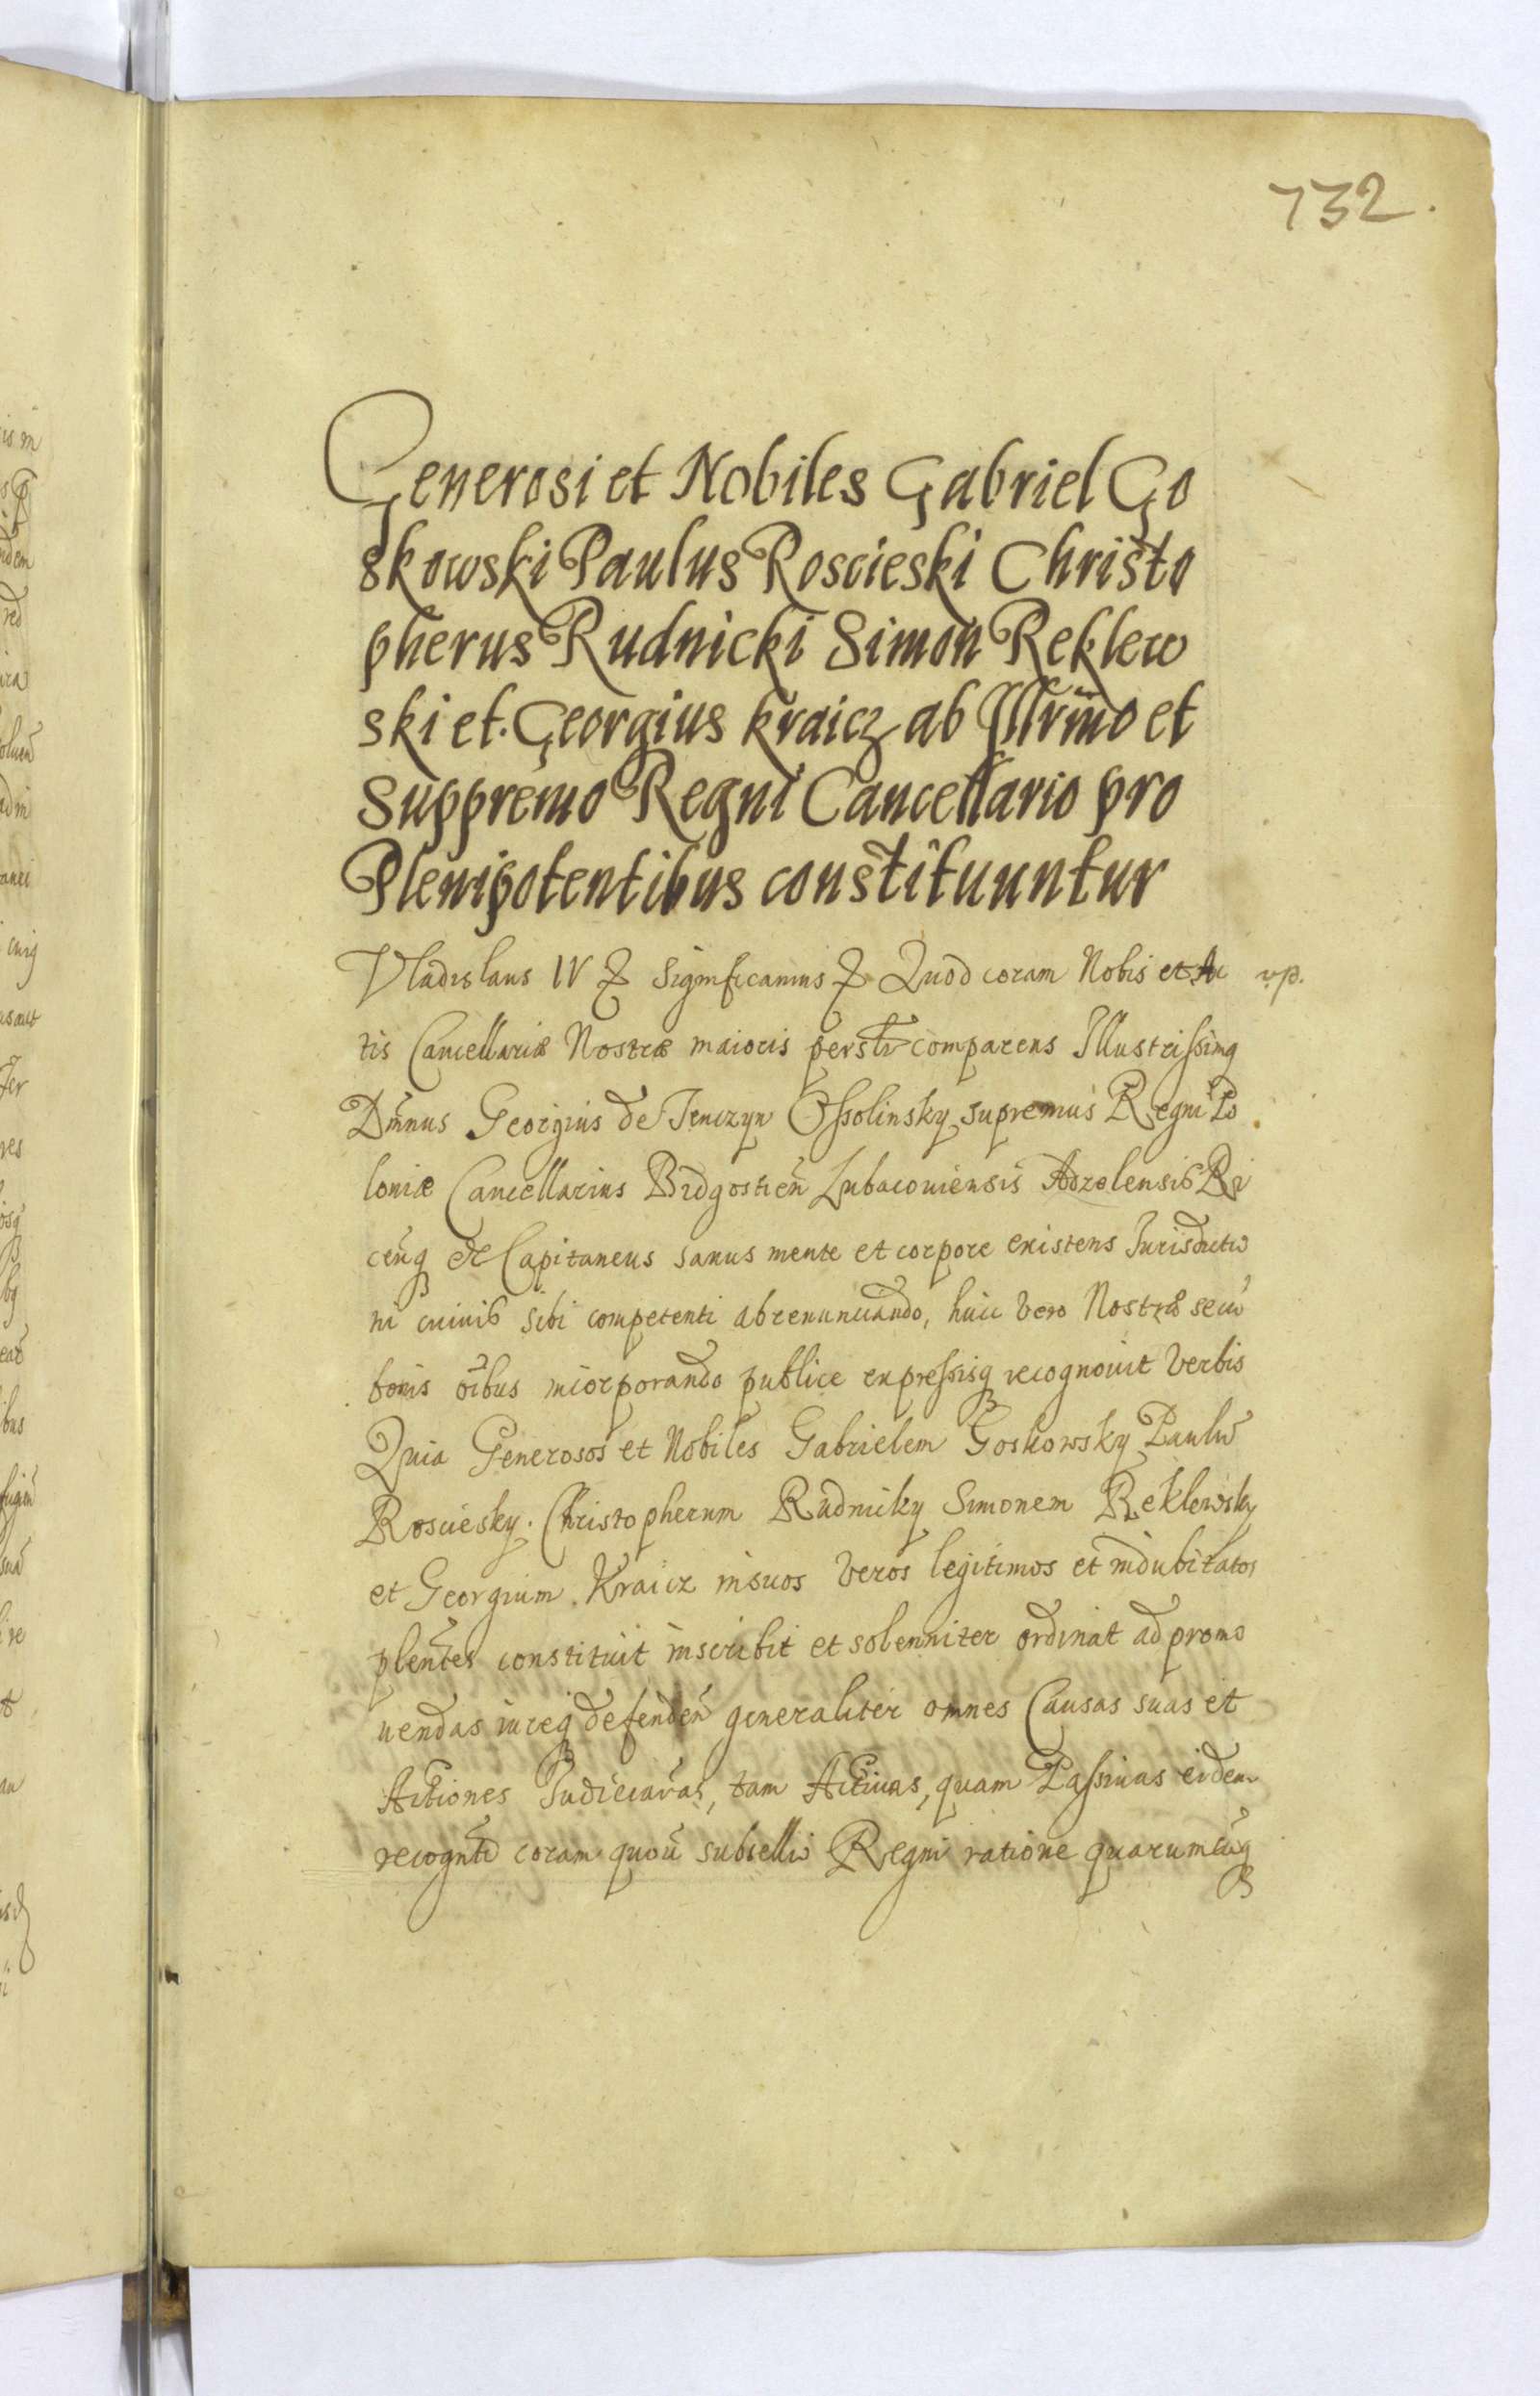 732.
Generosi et Nobiles Gabriel Go
skowski Paulus Roscieski Christo
pherus Rudnicki Simon Reklew
ski et. Georgius Kraicz ab Illrmo et
Suppremo Regni Cancellario pro
Plenipotentibus constituuntur
Vladislaus IV & Significamus & Quod coram Nobis et Ac vp.
tis Cancellariæ Nostræ maioris persltr comparens Illustrissimq
Dmnus Georgius de Tenczyn Ossolinsky supremus Regni Po
loniæ Cancellarius Bidgostien Lubaconiensis Adzelensis Ri
cenq & Capitaneus sanus mente et corpore existens Jurisdictio
ni cuiuis sibi competenti abrenunciando, huic vero Nostræ seu
bonis oibus incorporando publice expressisq recognouit verbis
Quia Generosos et Nobiles Gabrielem Goskowsky Paulu
Rosciesky. Christopherum Rudnicky Simonem Reklewsky
et Georgium Kraicz in suos veros legitimos et indubitatos
plentes constituit inscribit et solenniter ordinat ad promo
uendas iureq defenden generaliter omnes Causas suas et
Actiones Judiciaras, tam Actiuas, quam Passiuas eidem
recognti coram quou subsellio Regni ratione quarumcuq